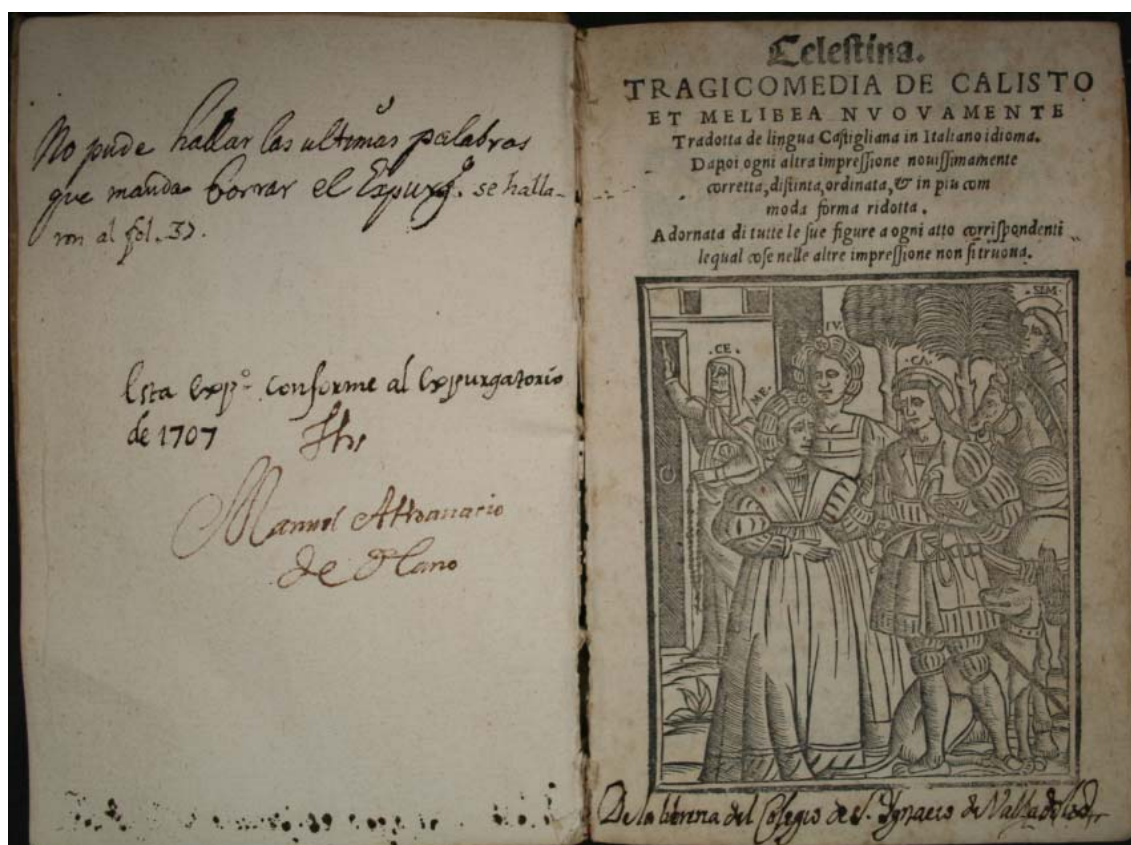 No pude hallar las ultimas palabras
que manda borrar el Expurg.º se halla-
ron al fol. 37.
Esta Expº conforme al Expurgatorio
de 1707 Jhs
Manuel Athanasio
de Olano
Celeſtina.
TRAGICOMEDIA DE CALISTO
ET MELIBEA NVOVAMENTE
Tradotta de lingua Caſtigliana in Italiano idioma.
Dapoi ogni altra impreſſione nouiſſimamente
corretta, diſtinta, ordinata, & in piu com
moda forma ridotta.
Adornata di tutte le ſue figure a ogni atto corriſpondenti
lequal coſe nelle altre impreſſione non ſi truoua.
.SEM.
LV.
.CE.
.CA.
ME.
De la libreria del Colegio de S. Ignacio de Valladolid